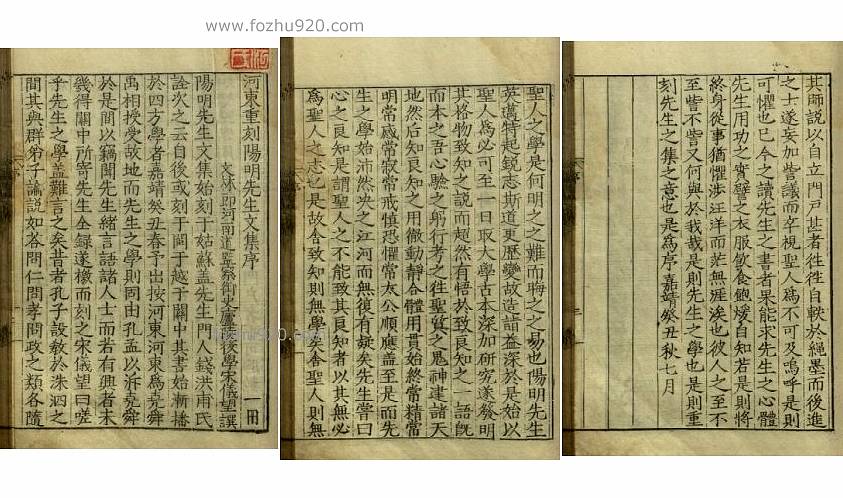 www.fozhu920.com
河東重刻陽明先生文集序 一冊
文林郎河南道監察御史廬陵後學宋儀望撰
陽明先生文集始刻于姑蘇蓋先生門人錢洪甫氏
詮次之云自後或刻于閩于越于關中其書始漸播
於四方學者嘉靖癸丑春予出按河東河東為堯舜
禹相授受故地而先生之學則固由孔孟以泝堯舜
於是間以竊聞先生緒言語諸人士而若有興者未
幾得關中所寄先生全録遂檄而刻之宋儀望曰嗟
乎先生之學蓋難言之矣昔者孔子設教於洙泗之
間其與群弟子論說如荅問仁問孝問政之類各隨
聖人之學是何明之之難而晦之之易也陽明先生
英邁特起鋭志斯道更歷變故造詣益深於是始以
聖人為必可至一日取大學古本深加研究遂發明
其格物致知之說而超然有悟於致良知之一語旣
而本之吾心驗之躬行考之往聖質之鬼神建諸天
地然后知良知之用徹動靜合體用貫始終常精常
明常感常寂常戒慎恐懼常大公順應蓋至是而先
生之學始沛然泱之江河而無復有疑矣先生嘗曰
心之良知是謂聖人之不能致其良知者以其無必
為聖人之志也是故舍致知則無學矣舍聖人則無
其師說以自立門戶甚者徃徃自軼於繩墨而後進
之士遂妄加訾議而卒視聖人為不可及嗚呼是則
可懼也已今之讀先生之書者果能求先生之心體
先生用功之實譬之衣服飲食飽煖自知若是則將
終身從事猶懼涉汪洋而茫無涯涘也彼人之至不
至訾不訾又何與於我哉是則先生之學也是則重
刻先生之集之意也是為序嘉靖癸丑秋七月